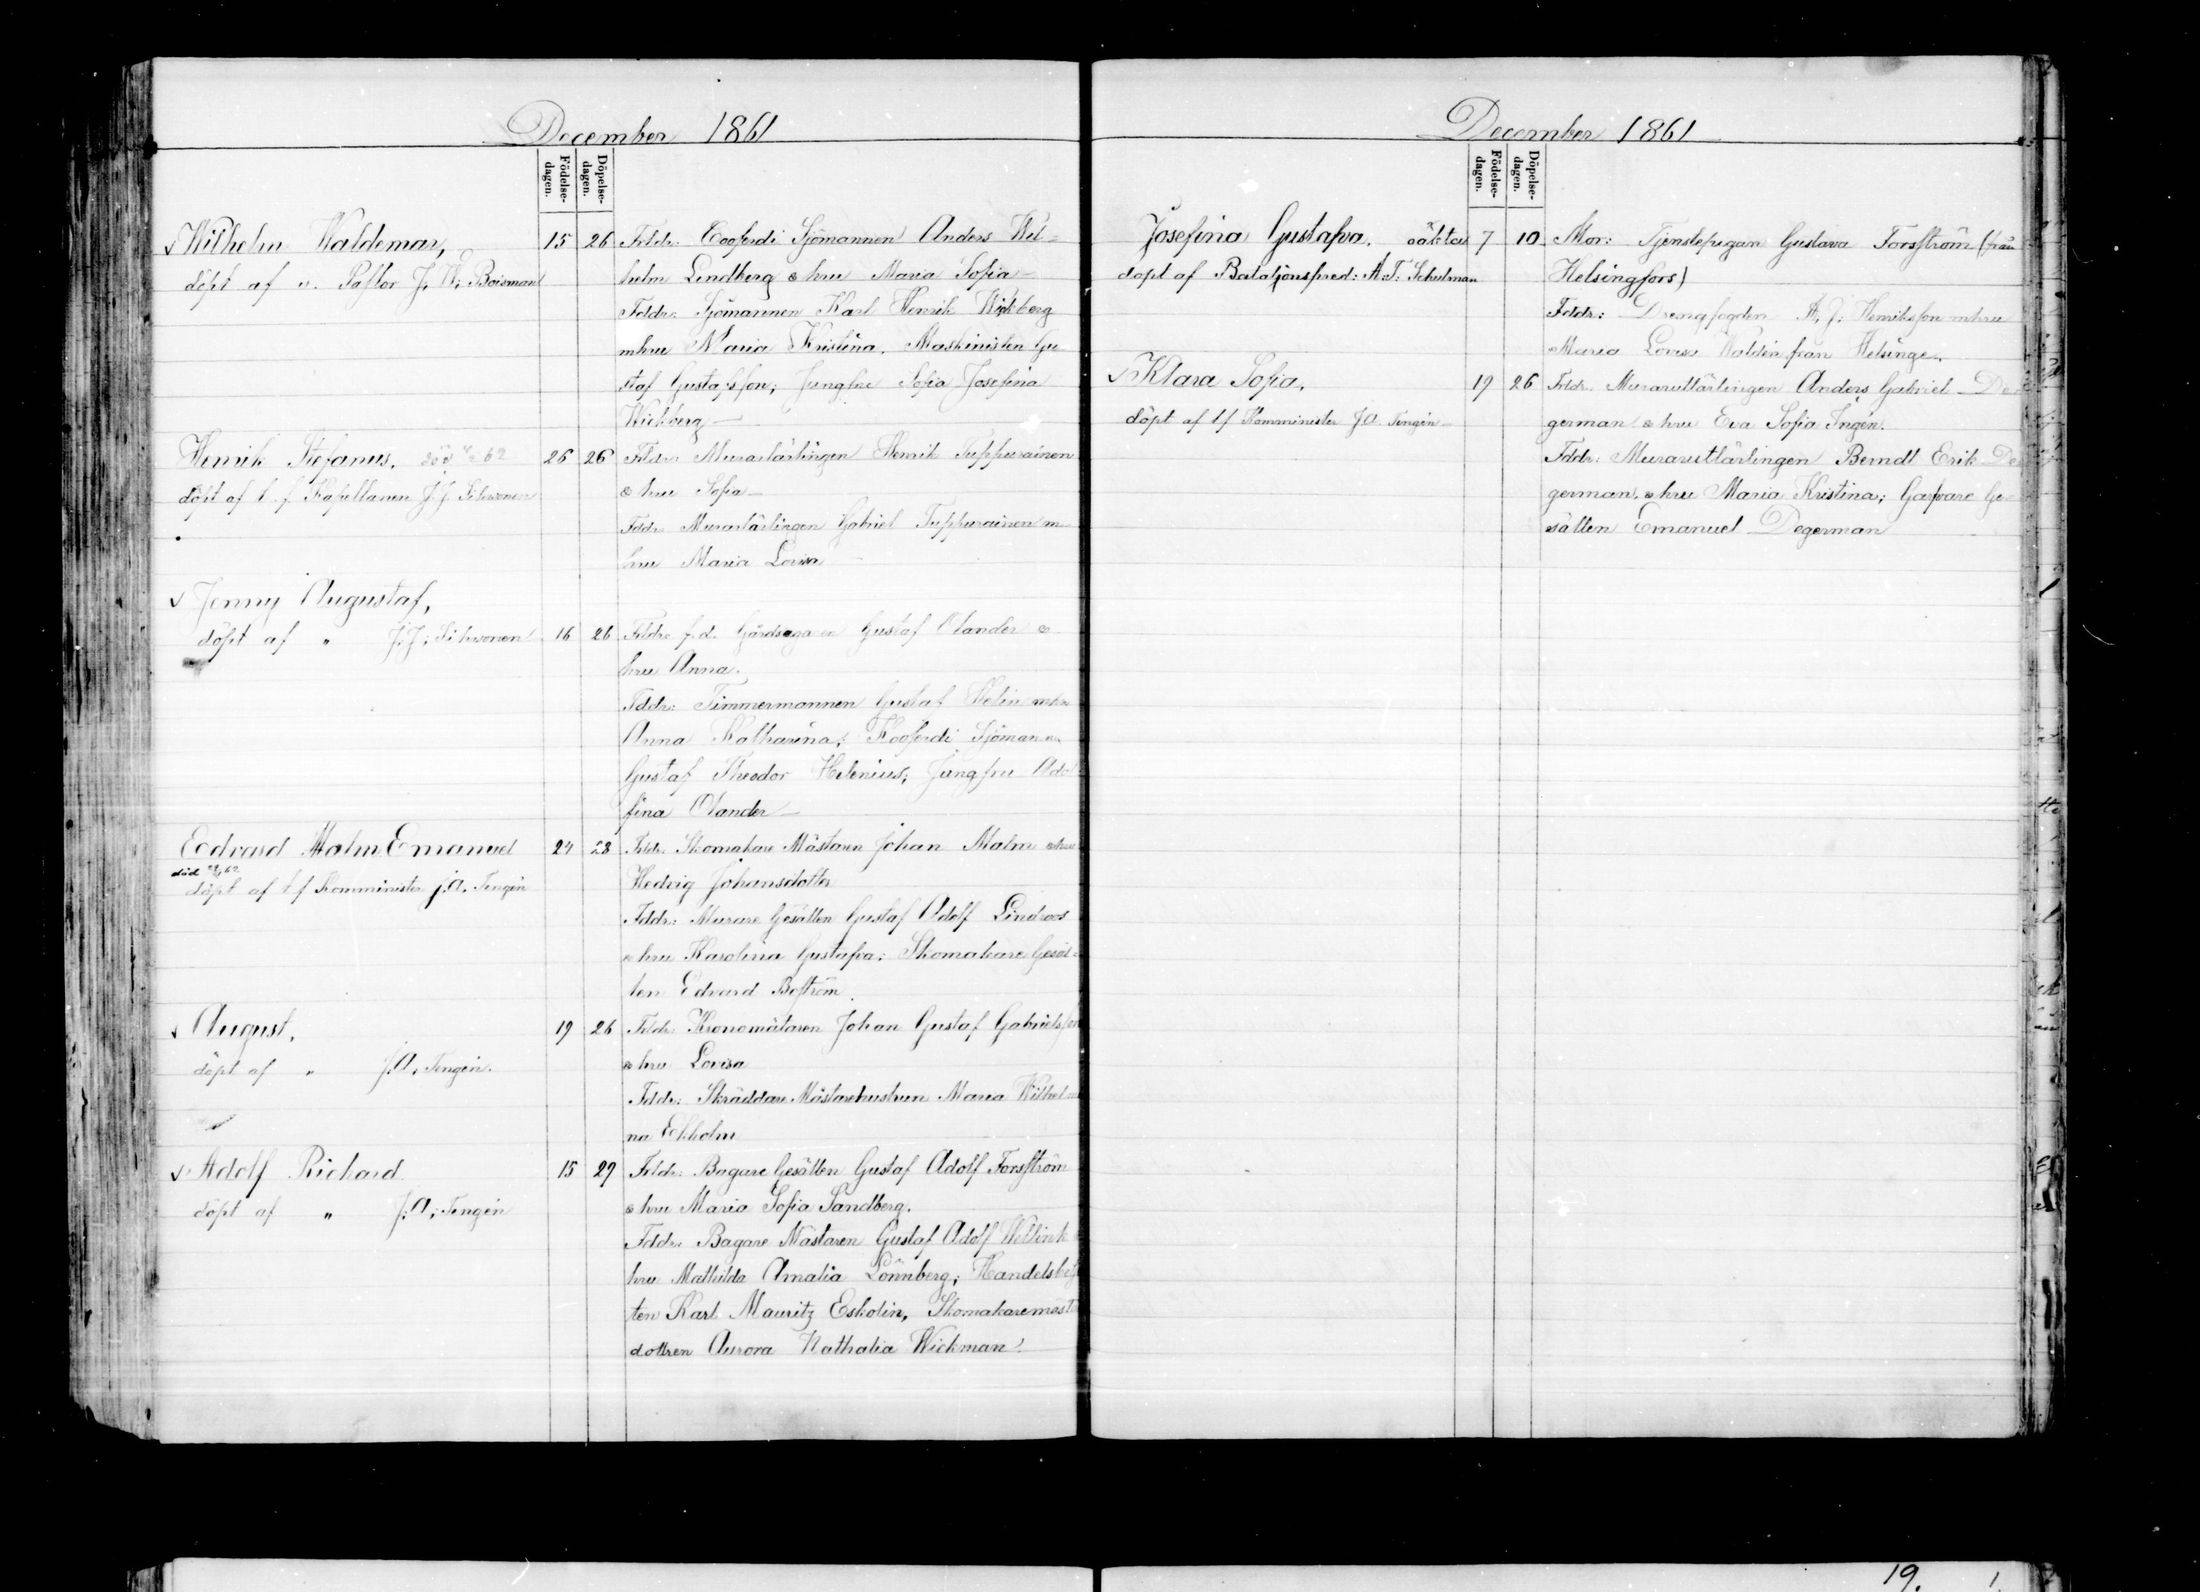 December 1861
Födelse-
dagen.
Döpelse-
dagen.
Wilhelm Waldemar,
döpt af v. Pastor J. W. Boisman
15 26
Frldr: Cooferdi Sjömannen Anders Wil-
helm Lindberg & hru Maria Sofia
Fddr: Sjömannen Karl Henrik Wickberg
mhru Maria Kristina. Maskinisten Gu
staf Gustafsson; Jungfru Sofia Josefina
Wickberg
Henrik Stefanus, död 62
döpt af t. f. Kapellanen J. J. Sihvonen
26 26
Frldr: Murarlärlingen Henrik Tuppurainen
& hru Sofia
Fddr: Murarlärlingen Gabriel Tuppurainen m
hru Maria Lovisa
Jenny Augustaf,
döpt af " J. J. Sihvonen
16 26
Frldr: f. d. Gårdsegaren Gustaf Olander &
hru Anna.
Fddr: Timmermannen Gustaf Helin mhru
Anna Katharina; Kooferdi Sjömann
Gustaf Theodor Helenius; Jungfru Adol
fina Olander
Edvard Malm Emanuel
död 62
döpt af t f Komminister J. A. Tengén
24 28
Frldr: Skomakare Mästaren Johan Malm & hru
Hedvig Johansdotter
Fddr: Murare Gesällen Gustaf Adolf Lindroos
& hru Karolina Gustafva; Skomakare Gesäl-
len Edvard Boström
August,
döpt af " J. A. Tengén.
19 26
Frldr: Kronomätaren Johan Gustaf Gabrielsson
& hru Lovisa
Fddr: Skräddare Mästarehustrun Maria Wilhelmi
na Ekholm
Adolf Richard
döpt af " J. A. Tengén
15 29
Frldr: Bagare Gesällen Gustaf Adolf Forsström
& hru Maria Sofia Sandberg.
Fddr: Bagare Mästaren Gustaf Adolf Wellink
hru Mathilda Amalia Lönnberg; Handelsbetj
ten Karl Mauritz Eskolin, Skomakaremäst
dottren Aurora Nathalia Wickman.
December 1861
Födelse-
dagen.
Döpelse-
dagen.
Josefina Gustafva. oäkta
döpt af Bataljonspred: A. T. Schulman
7 10
Mor: Tjenstepigan Gustava Forsström (från
Helsingfors)
Fddr: Drengfogden A. J. Henriksson mhru
Maria Lovisa Waldén från Helsinge.
Klara Sofia,
döpt af t f Komminister J. A. Tengén
19 26
Frldr: Murarellärlingen Anders Gabriel De
german & hru Eva Sofia Ingén.
Fddr: Murarellärlingen Berndt Erik De
german, & hru Maria Kristina; Garfvare Ge-
sällen Emanuel Degerman
19.